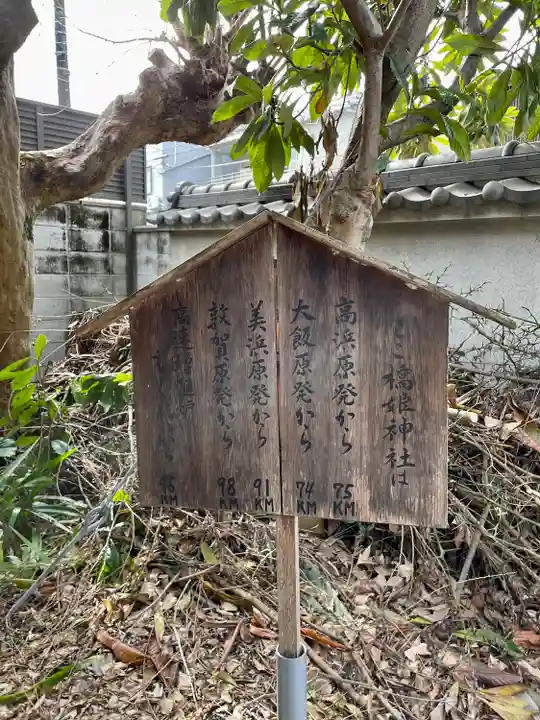 ここ橋姫神社は
高浜原発から 75KM
大飯原発から 74KM
美浜原発から 91KM
敦賀原発から 98KM
高速増殖炉もんじゅから 96KM